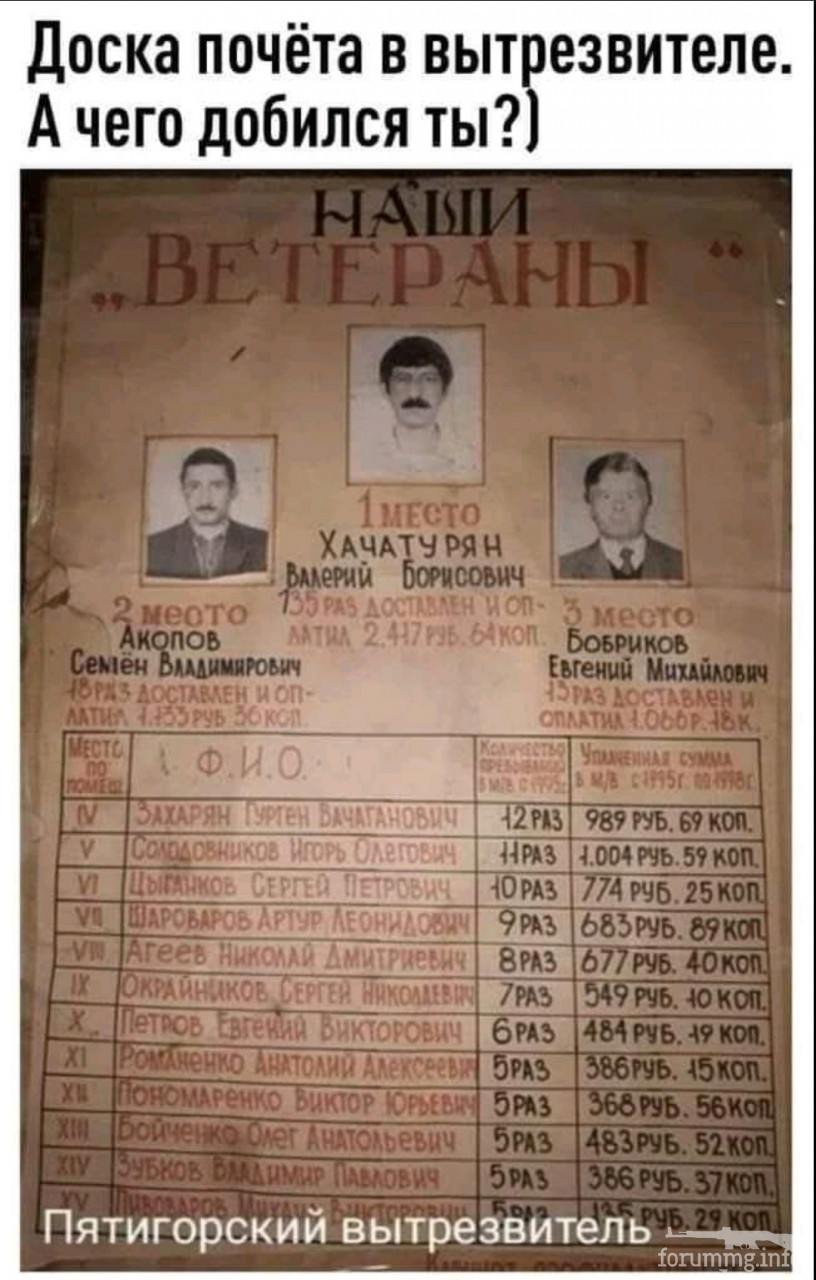 Доска почёта в вытрезвителе.
А чего добился ты?)
НАШИ
„ВЕТЕРАНЫ“
1 МЕСТО
ХАЧАТУРЯН
ВАЛЕРИЙ БОРИСОВИЧ
135 РАЗ ДОСТАВЛЕН И ОП-
ЛАТИЛ 2.417 РУБ. 64 КОП.
2 МЕСТО
АКОПОВ
СЕМЁН ВЛАДИМИРОВИЧ
18 РАЗ ДОСТАВЛЕН И ОП-
ЛАТИЛ 1.133 РУБ 36 КОП
3 МЕСТО
БОБРИКОВ
ЕВГЕНИЙ МИХАЙЛОВИЧ
15 РАЗ ДОСТАВЛЕН И
ОПЛАТИЛ 1.066 Р. 18 К.
МЕСТО ПО ПОМЕЩ. Ф.И.О. КОЛИЧЕСТВО ПРЕБЫВАНИЙ В М/В С 1995г. УПЛАЧЕННАЯ СУММА В М/В С 1995г. ПО 1998г.
IV ЗАХАРЯН ГУРГЕН ВАЧАГАНОВИЧ 12 РАЗ 989 РУБ. 69 КОП.
V СОЛОДОВНИКОВ ИГОРЬ ОЛЕГОВИЧ 11 РАЗ 1.004 РУБ. 59 КОП.
VI ЦЫГАНКОВ СЕРГЕЙ ПЕТРОВИЧ 10 РАЗ 774 РУБ. 25 КОП.
VII ШАРОВАРОВ АРТУР ЛЕОНИДОВИЧ 9 РАЗ 683 РУБ. 89 КОП.
VIII АГЕЕВ НИКОЛАЙ ДМИТРИЕВИЧ 8 РАЗ 677 РУБ. 40 КОП.
IX ОКРАЙНИКОВ СЕРГЕЙ НИКОЛАЕВИЧ 7 РАЗ 549 РУБ. 10 КОП.
X ПЕТРОВ ЕВГЕНИЙ ВИКТОРОВИЧ 6 РАЗ 484 РУБ. 19 КОП.
XI РОМАНЕНКО АНАТОЛИЙ АЛЕКСЕЕВИЧ 5 РАЗ 386 РУБ. 15 КОП.
XII ПОНОМАРЕНКО ВИКТОР ЮРЬЕВИЧ 5 РАЗ 368 РУБ. 56 КОП
XIII БОЙЧЕНКО ОЛЕГ АНАТОЛЬЕВИЧ 5 РАЗ 483 РУБ. 52 КОП.
XIV ЗУБКОВ ВЛАДИМИР ПАВЛОВИЧ 5 РАЗ 386 РУБ. 37 КОП.
XV ПИВОВАРОВ МИХАИЛ ВИКТОРОВИЧ 5 РАЗ РУБ. 29 КОП
Пятигорский вытрезвитель
forummg.info